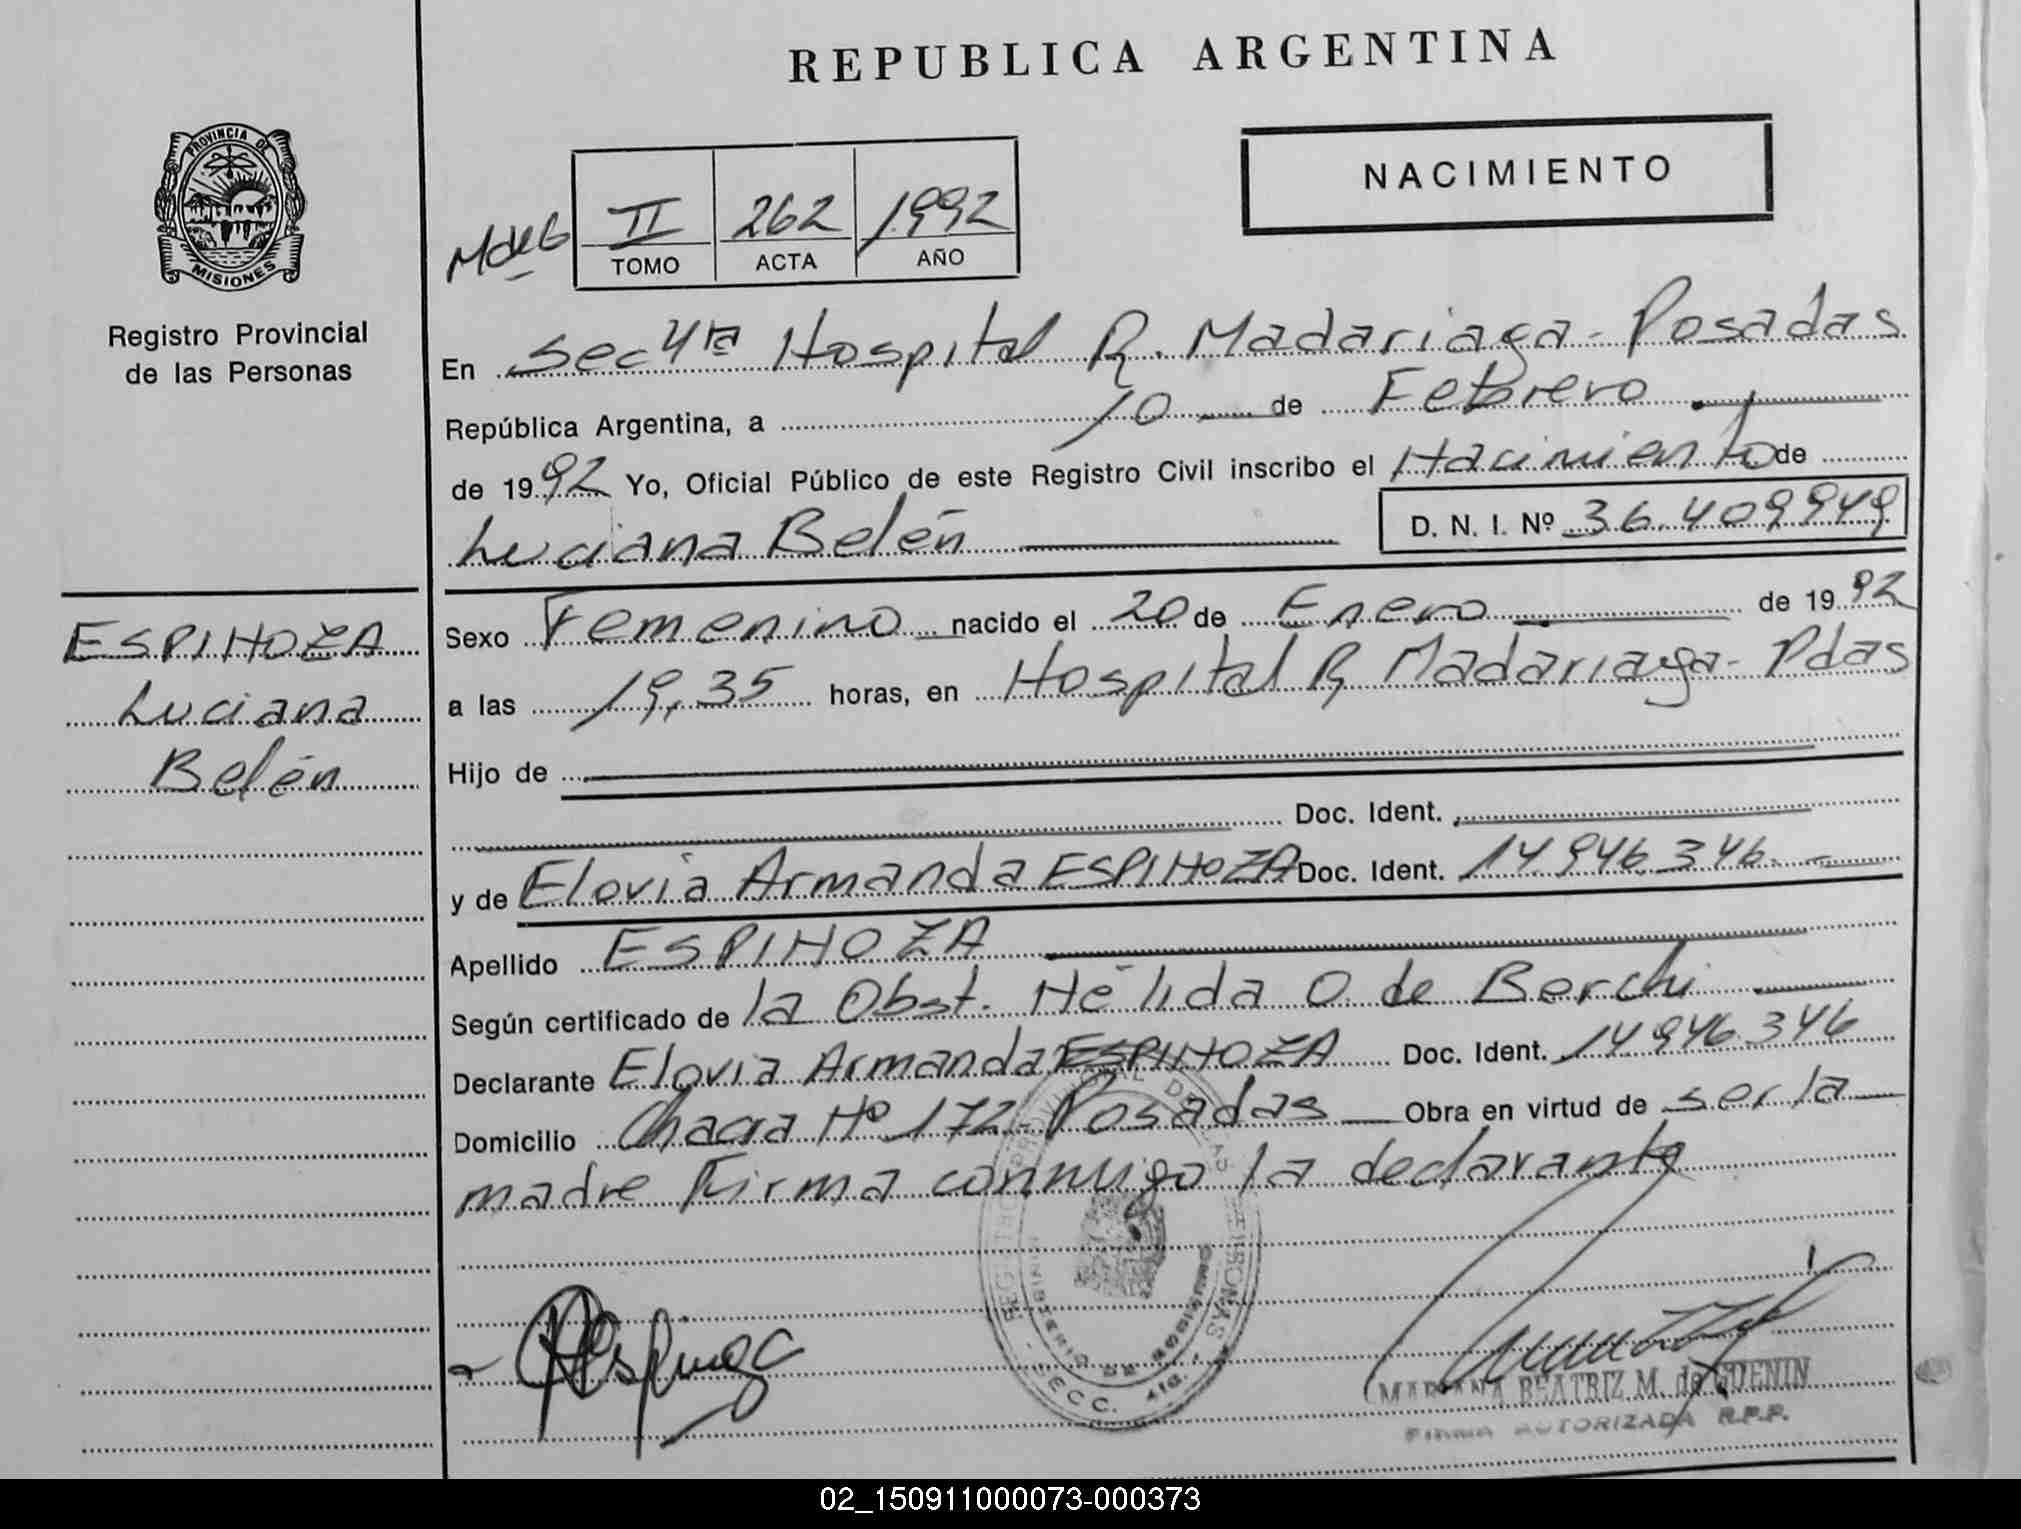 REPUBLICA ARGENTINA
NACIMIENTO
PROVINCIA DE
MISIONES
Registro Provincial
de las Personas
II 262 1992
TOMO ACTA AÑO
En Sec 4ta Hospital R. Madariaga - Posadas
República Argentina, a 10 de Febrero
de 1992 Yo, Oficial Público de este Registro Civil inscribo el Nacimiento de
Luciana Belén D. N. I. Nº 36.409949
ESPINOZA
Luciana
Belén
Sexo Femenino nacido el 20 de Enero de 1992
a las 19,35 horas, en Hospital R Madariaga - Pdas
Hijo de
Doc. Ident.
y de Elovia Armanda ESPINOZA Doc. Ident. 14.946.346
Apellido ESPINOZA
Según certificado de la Obst. Nélida O. de Berchi
Declarante Elovia Armanda ESPINOZA Doc. Ident. 14946.346
Domicilio Chacra Nº 172 - Posadas Obra en virtud de ser la
madre Firma conmigo la declarante
REGISTRO PROVINCIAL DE LAS PERSONAS
SECC. 4ta.
MARIANA BEATRIZ M. de GUENIN
FIRMA AUTORIZADA R.P.P.
02_150911000073-000373